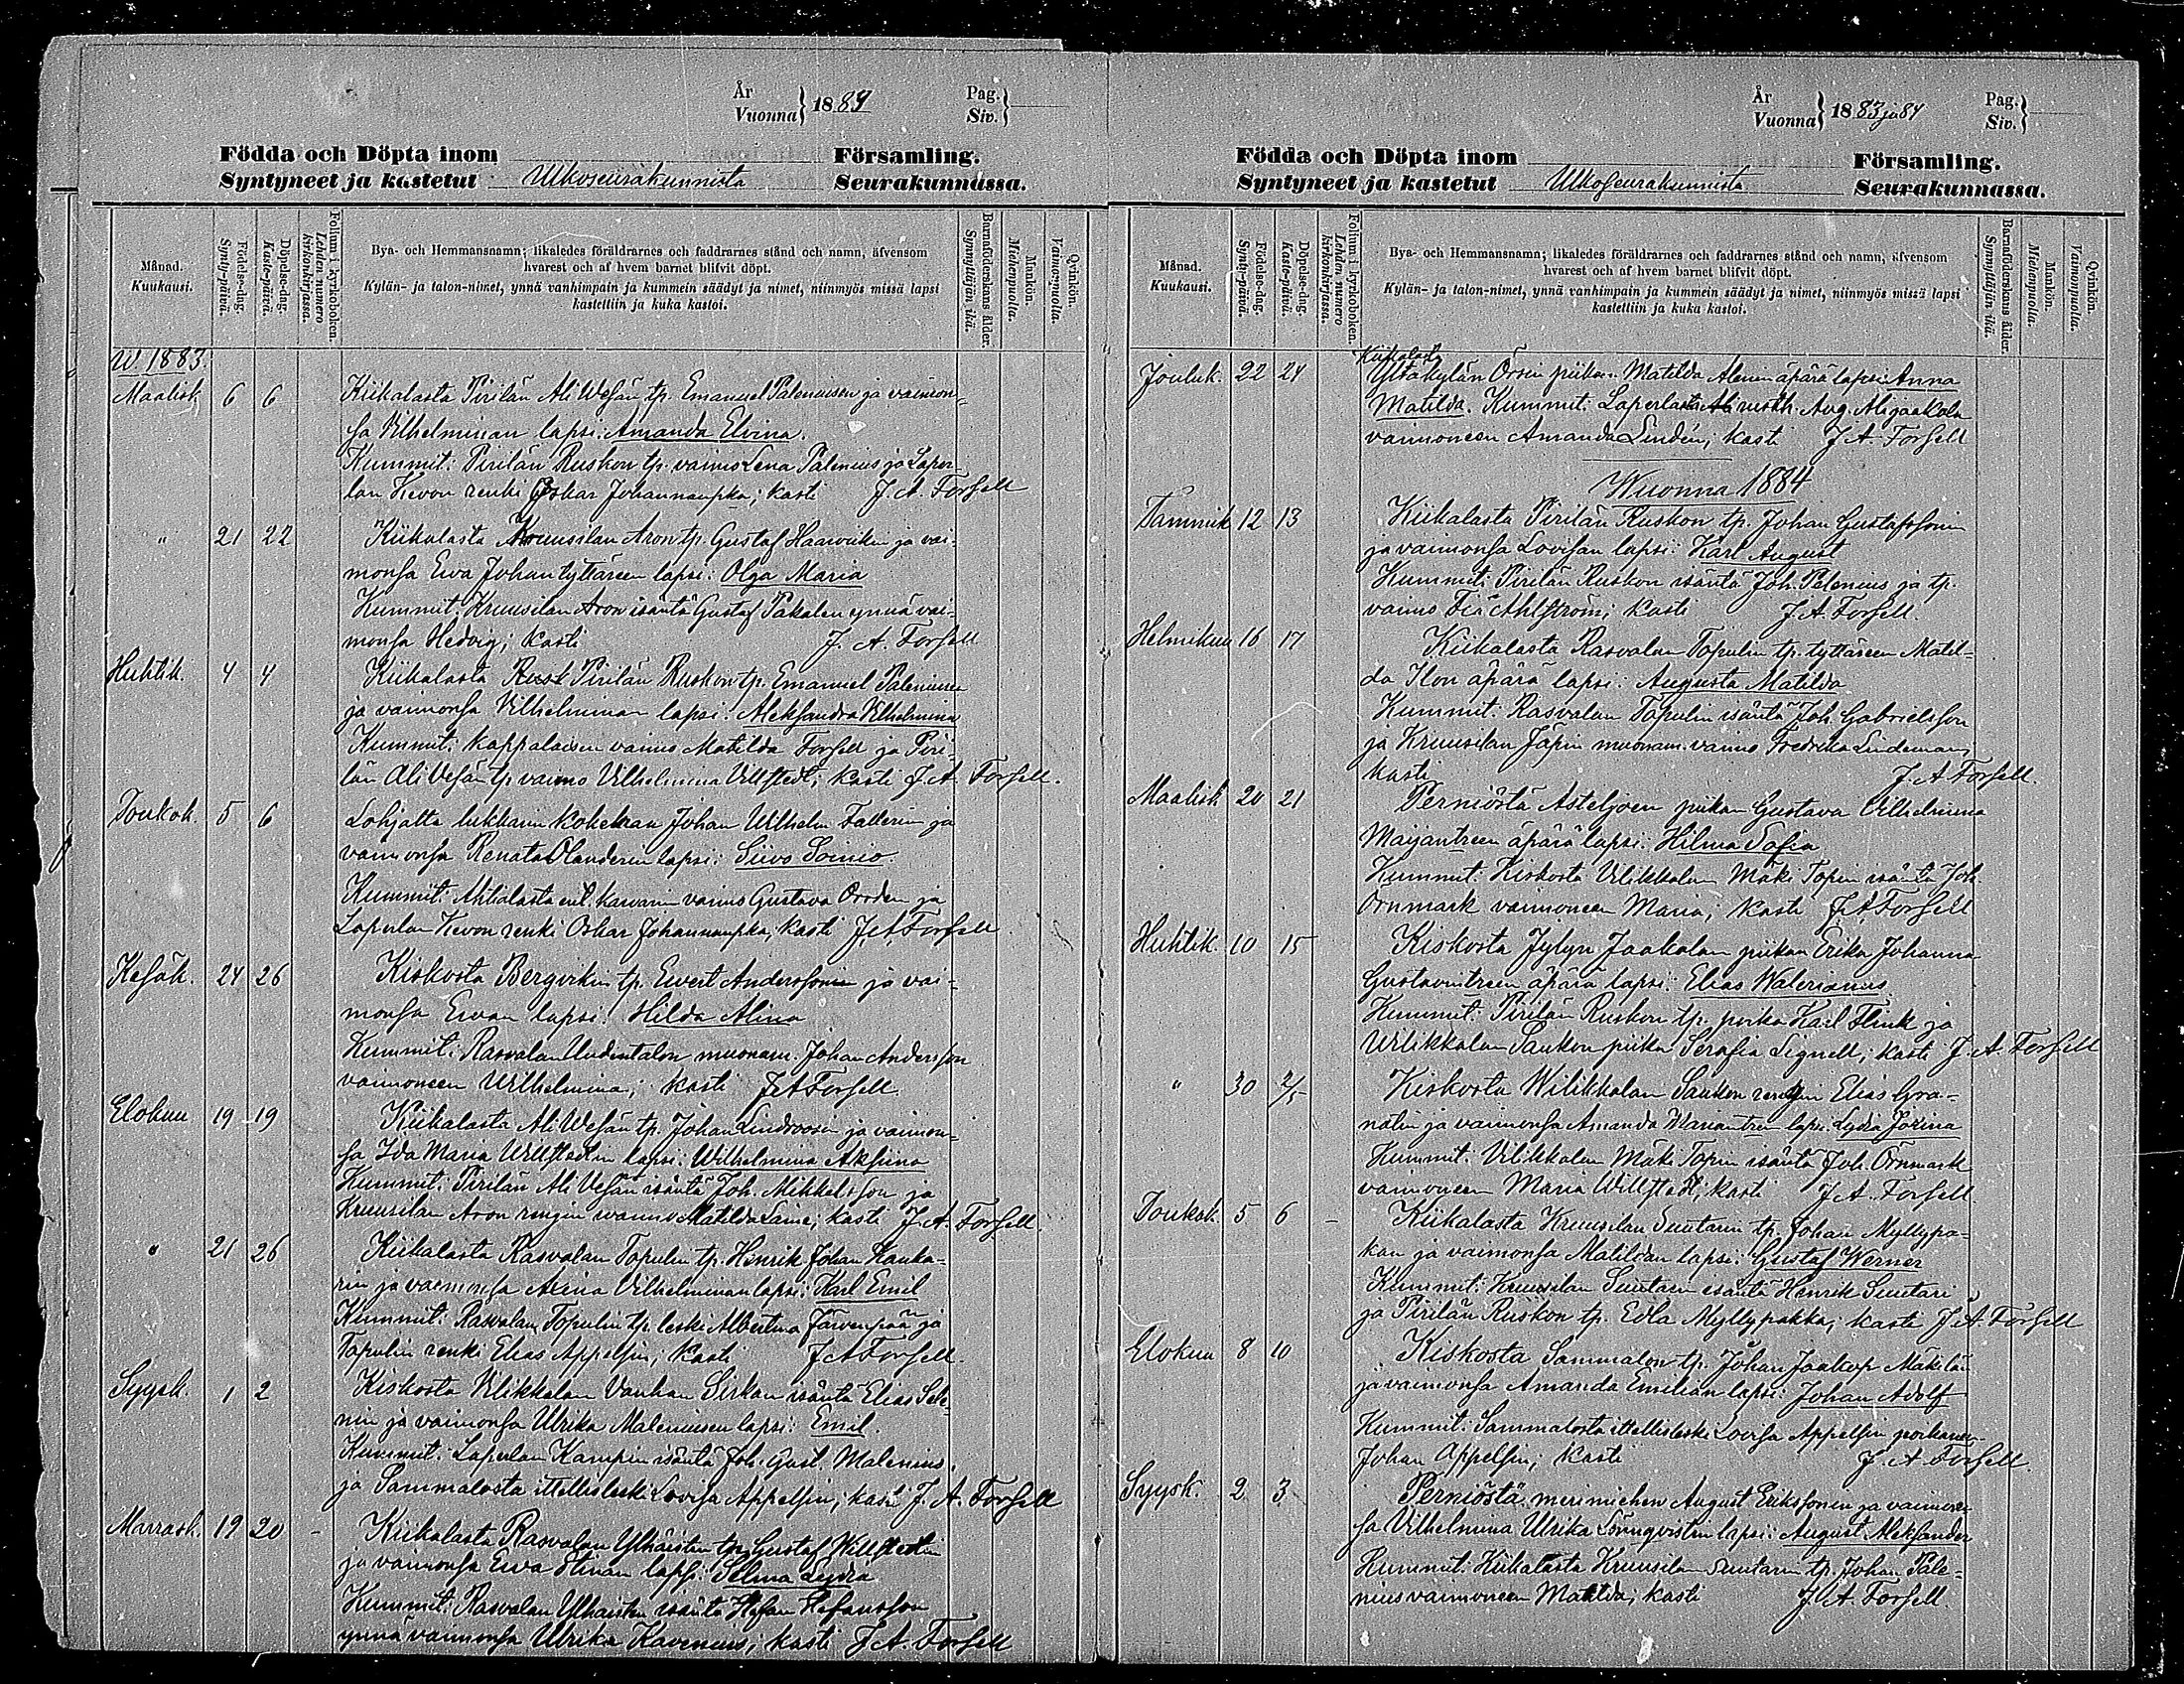 År
Vuonna } 1884
Pag.
Siv. }
Födda och Döpta inom Församling.
Syntyneet ja kastetut Ulkoseurakunnista Seurakunnassa.
Månad.
Kuukausi.
Födelse-dag.
Synty-päivä.
Döpelse-dag.
Kaste-päivä.
Folium i kyrkoboken.
Lehden numero kirkonkirjassa.
Bya- och Hemmansnamn; likaledes föräldrarnes och faddrarnes stånd och namn, äfvensom
hvarest och af hvem barnet blifvit döpt.
Kylän- ja talon-nimet, ynnä vanhimpain ja kummein säädyt ja nimet, niinmyös missä lapsi
kastettiin ja kuka kastoi.
Barnaföderskans ålder.
Synnyttäjän ikä.
Mankön.
Miehenpuolia.
Qvinkön.
Vaimonpuolia.
W. 1883.
Maalisk. 6 6 Kiikalasta Pirilän Ali Wesän tp. Emanuel Paleniusen ja vaimon-
sa Vilhelminan lapsi: Amanda Elvina.
Kummit: Pirilän Ruskon tp. vaimo Lena Palenius ja Laper-
lan Hevon renki Oskar Johannanpka; kasti J. A. Forsell
" 21 22 Kiikalasta Kruusilan Aron tp. Gustaf Haaviken ja vai-
monsa Ewa Johantyttäreen lapsi: Olga Maria
Kummit: Kruusilan Aron isäntä Gustaf Pakalen ynnä vai-
monsa Hedvig; kasti J. A. Forsell
Huhtik. 4 4 Kiikalasta Rusk Pirilän Ruskon tp. Emanuel Paleniusen
ja vaimonsa Vilhelminan lapsi: Aleksandra Vilhelmina
Kummit: kappalaisen vaimo Matilda Forsell ja Piri-
län Ali Vesän tp. vaimo Vilhelmina Villstedt; kasti J. A. Forsell.
Toukok. 5 6 Lohjalta lukkarin kokelaan Johan Wilhelm Fallerin ja
vaimonsa Renata Olanderin lapsi: Siivo Soinio.
Kummit: vaimo Gustava Orrdén ja
Laperlan Hevon renki Oskar Johannanpka; kasti J. A. Forsell
Kesäk. 24 26 Kiskosta Bergvikin tp. Evert Anderssonin ja vai-
monsa Ewan lapsi: Hilda Alina
Kummit: Rasvalan Uudentalon muonam. Johan Andersson
vaimoneen Wilhelmina; kasti J A Forsell.
Elokuu 19 19 Kiikalasta Ali Wesän tp. Johan Lindroosin ja vaimon-
sa Ida Maria Willstedtin lapsi: Wilhelmina Aksiina
Kummit: Pirilän Ali Vesän isäntä Joh. Mikkelsson ja
Kruusilan Aron rengin vaimo Matilda Laine; kasti J. A. Forsell.
" 21 26 Kiikalasta Rasvalan Topulin tp. Henrik Johan Kauka-
rin ja vaimonsa Vilhelminan lapsi: Karl Emil
Kummit: Rasvalan Topulin tp. leski Albertina Järvenpää ja
Topulin renki Elias Appelsin; kasti J A Forsell.
Syysk. 1 2 Kiskosta Vilikkalan Vanhan Sirkan isäntä Elias Sele-
nin ja vaimonsa Ulrika Maleniusen lapsi: Emil.
Kummit: Laperlan Kampin isäntä Joh. Gust. Malenius.
ja Sammalosta ittellisleski Lovisa Appelsin; kasti J. A. Forsell
Marrask. 19 20 - Kiikalasta Rasvalan Ylhäisten tp. Gustaf Willstedtin
ja vaimonsa Ewa Stinan lapsi: Selma Lydia
Kummit: Rasvalan Ylhäisten isäntä Stefan Stefansson
ynnä vaimonsa Ulrika Kavenius; kasti J. A. Forsell
År
Vuonna } 1883 ja 84
Pag.
Siv. }
Födda och Döpta inom Församling.
Syntyneet ja kastetut Ulkoseurakunnista Seurakunnassa.
Månad.
Kuukausi.
Födelse-dag.
Synty-päivä.
Döpelse-dag.
Kaste-päivä.
Folium i kyrkoboken.
Lehden numero kirkonkirjassa.
Bya- och Hemmansnamn; likaledes föräldrarnes och faddrarnes stånd och namn, äfvensom
hvarest och af hvem barnet blifvit döpt.
Kylän- ja talon-nimet, ynnä vanhimpain ja kummein säädyt ja nimet, niinmyös missä lapsi
kastettiin ja kuka kastoi.
Barnaföderskans ålder.
Synnyttäjän ikä.
Mankön.
Miehenpuolia.
Qvinkön.
Vaimonpuolia.
Kiikalasta
Jouluk. 22 24 Yltäkylän Örsin piikan Matilda Alenin äpärä lapsi: Anna
Matilda. Kummit: Laperlasta Aug. Alijaakola
vaimoneen Amanda Lindén; kasti J. A. Forsell
Wuonna 1884
Tammik. 12 13 Kiikalasta Pirilän Ruskon tp. Johan Gustafssonin
ja vaimonsa Lovisan lapsi: Karl August
Kummit: Pirilän Ruskon isäntä Joh. Palenius ja tp.
vaimo Fia Ahlström; kasti J. A. Forsell.
Helmikuu 16 17 Kiikalasta Rasvalan Topulin tp. tyttäreen Matil-
da Ilon äpärä lapsi: Augusta Matilda
Kummit: Rasvalan Topulin isäntä Joh. Gabrielsson
ja Kruusilan Jäpin muonam. vaimo Fredrika Lindeman;
kasti J. A Forsell.
Maalisk. 20 21 Perniöstä Asteljoen piikan Gustava Vilhelmina
Maijantreen äpärä lapsi: Hilma Sofia
Kummit: Kiskosta Vilikkalan Mäki Topin isäntä Joh.
Örnmark vaimoneen Maria; kasti J A Forsell
Huhtik. 10 15 Kiskosta Jylyn Jaakolan piikan Erika Johanna
Gustaventreen äpärä lapsi: Elias Walerianus.
Kummit: Pirilän Ruskon tp. poika Karl Flink ja
Wilikkalan Saukon piika Serafia Lignell; kasti J. A. Forsell
" 30 2/5 Kiskosta Wilikkalan Saukon rengin Elias Gra-
natin ja vaimonsa Amanda Mariantreen lapsi: Lydia Josina
Kummit: Vilikkalan Mäki Topin isäntä Joh. Örnmark
vaimoneen Maria Willstedt; kasti J. A. Forsell.
Toukok. 5 6 - Kiikalasta Kruusilan Suutarin tp. Johan Myllypa-
kan ja vaimonsa Matildan lapsi: Gustaf Werner
Kummit: Kruusilan Suutarin isäntä Henrik Suutari
ja Pirilän Ruskon tp. Edla Myllypakka; kasti J. A. Forsell
Elokuu 8 10 Kiskosta Sammalon tp. Johan Jaakop Mäkilän
ja vaimonsa Amanda Emilian lapsi: Johan Adolf
Kummit: Sammalosta ittellisleski Lovisa Appelsin poikaneen
Johan Appelsin; kasti J. A Forsell.
Syysk. 2 3 Perniöstä merimiehen August Erikssonin ja vaimon-
sa Vilhelmina Ulrika Lönnqvistin lapsi: August Aleksander
Kummit: Kiikalasta Kruusilan Suutarin tp. Johan Pale-
nius vaimoneen Matilda; kasti J. A. Forsell.